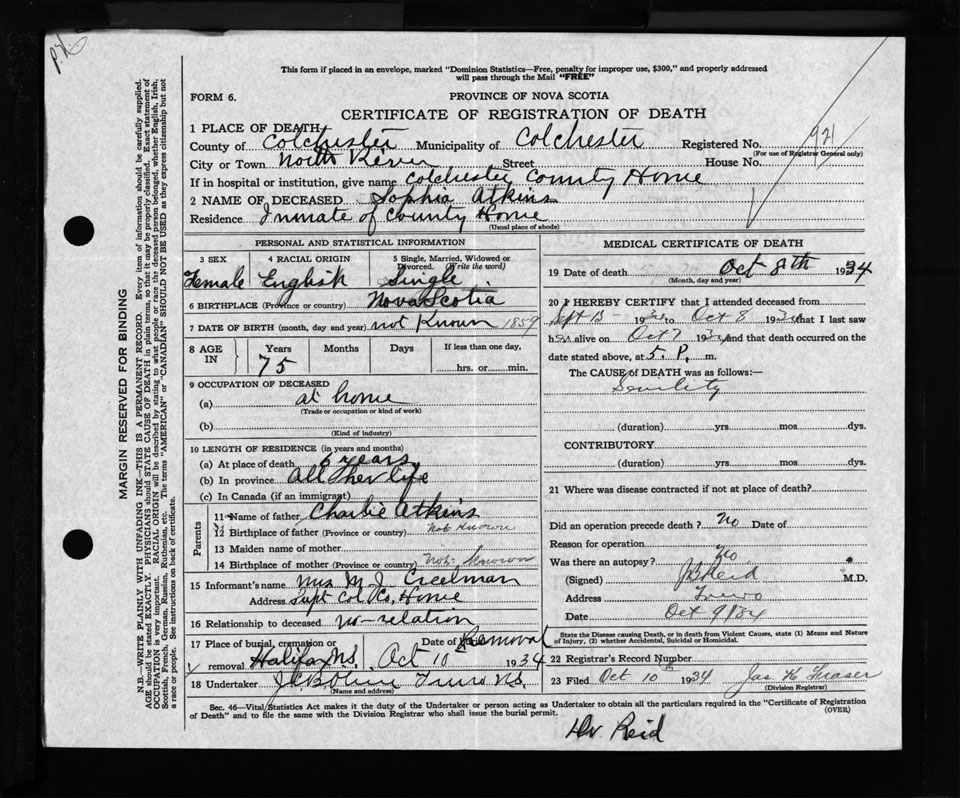 This form if placed in an envelope, marked "Dominion Statistics—Free, penalty for improper use, $300," and properly addressed
will pass through the Mail "FREE"
FORM 6.
PROVINCE OF NOVA SCOTIA
CERTIFICATE OF REGISTRATION OF DEATH
1 PLACE OF DEATH
County of Colchester Municipality of Colchester Registered No. 921
(For use of Registrar General only)
City or Town North River Street House No.
If in hospital or institution, give name Colchester County Home
2 NAME OF DECEASED Sophia Atkins
Residence Inmate of County Home
(Usual place of abode)
PERSONAL AND STATISTICAL INFORMATION
3 SEX 4 RACIAL ORIGIN 5 Single, Married, Widowed or Divorced. (Write the word)
Female English Single
6 BIRTHPLACE (Province or country) Nova Scotia
7 DATE OF BIRTH (month, day and year) not Known 1859
8 AGE IN Years Months Days If less than one day,
75 hrs. or min.
9 OCCUPATION OF DECEASED
(a) at home
(Trade or occupation or kind of work)
(b)
(Kind of industry)
10 LENGTH OF RESIDENCE (in years and months)
(a) At place of death 6 years
(b) In province All her life
(c) In Canada (if an immigrant)
Parents
11 Name of father Charlie Atkins
12 Birthplace of father (Province or country) Not Known
13 Maiden name of mother
14 Birthplace of mother (Province or country) Not Known
15 Informant's name Mrs M. J.
Address Supt Col Co, Home
16 Relationship to deceased no-relation
17 Place of burial, cremation or removal Halifax N.S. Date of Removal Oct 10 1934
18 Undertaker Truro N.S.
(Name and address)
MEDICAL CERTIFICATE OF DEATH
19 Date of death Oct 8th 1934
(Month, day and year)
20 I HEREBY CERTIFY that I attended deceased from
Sept 15 1934 to Oct 8 1934 that I last saw
her alive on Oct 7 1934 and that death occurred on the
date stated above, at 5. P. m.
The CAUSE OF DEATH was as follows:—
Senility
(duration) yrs mos dys.
CONTRIBUTORY
(duration) yrs mos dys.
21 Where was disease contracted if not at place of death?
Did an operation precede death? No Date of
Reason for operation
Was there an autopsy? No
(Signed) Reid M.D.
Address Truro
Date Oct 9/34
State the Disease causing Death, or in death from Violent Causes, state (1) Means and Nature
of Injury, (2) whether Accidental, Suicidal or Homicidal.
22 Registrar's Record Number
23 Filed Oct 10th 1934 Jas H Fraser
(Division Registrar)
Sec. 46—Vital Statistics Act makes it the duty of the Undertaker or person acting as Undertaker to obtain all the particulars required in the "Certificate of Registration
of Death" and to file the same with the Division Registrar who shall issue the burial permit.
(OVER)
Dr Reid
MARGIN RESERVED FOR BINDING
N.B.—WRITE PLAINLY WITH UNFADING INK—THIS IS A PERMANENT RECORD. Every item of information should be carefully supplied.
AGE should be stated EXACTLY. PHYSICIANS should STATE CAUSE OF DEATH in plain terms, so that it may be properly classified. Exact statement of
OCCUPATION is very important. RACIAL ORIGIN will be described by stating to what people or race the deceased person belonged, whether English, Irish,
Scottish, French, German, Russian, Ruthenian, etc. The terms "AMERICAN" or "CANADIAN" SHOULD NOT BE USED as they express citizenship but not
a race or people. See instructions on back of certificate.